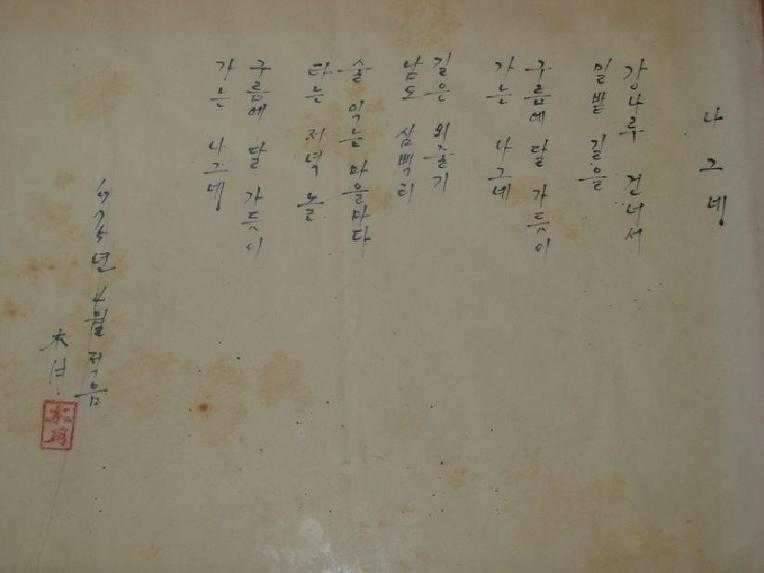 나그네
강나루 건너서
밀밭 길을
구름에 달 가듯이
가는 나그네
길은 외줄기
남도 삼백리
술 익는 마을마다
타는 저녁 놀
구름에 달 가듯이
가는 나그네
1975년 적음
木月